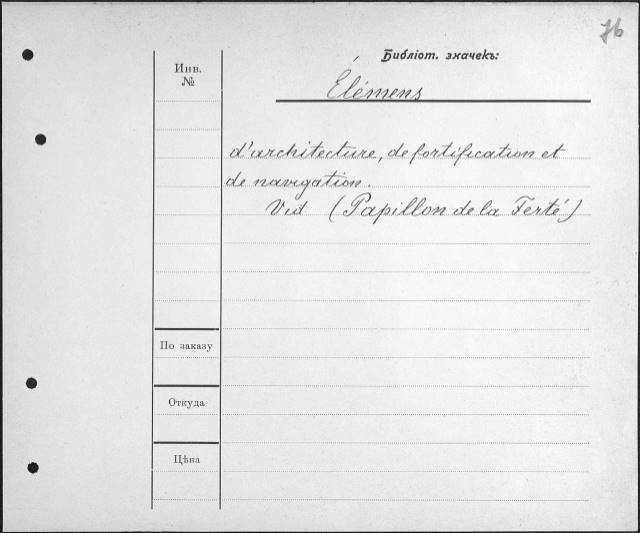 76
Библіот. значекъ:
Инв.
№
Élémens
d'architecture, de fortification et
de navigation.
Vid (Papillon de la Ferté)
По заказу
Откуда
Цѣна